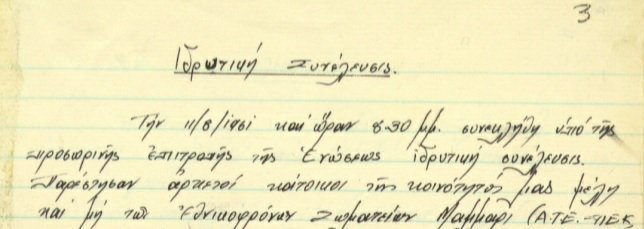 3
Ἱδρυτική Συνέλευσις.
Τήν 11/8/1961 καί ὥραν 8-30 μμ. συνεκλήθη ὑπό τῆς
προσωρινῆς ἐπιτροπῆς τῆς Ἑνώσεως ἱδρυτική συνέλευσις.
Παρέστησαν ἀρκετοί κάτοικοι τῆς κοινότητός μας μέλη
καί μή τῶν Ἐθνικοφρόνων Σωματείων Μάμμαρι (Α.Τ.Ε. - Π.Ε.Κ